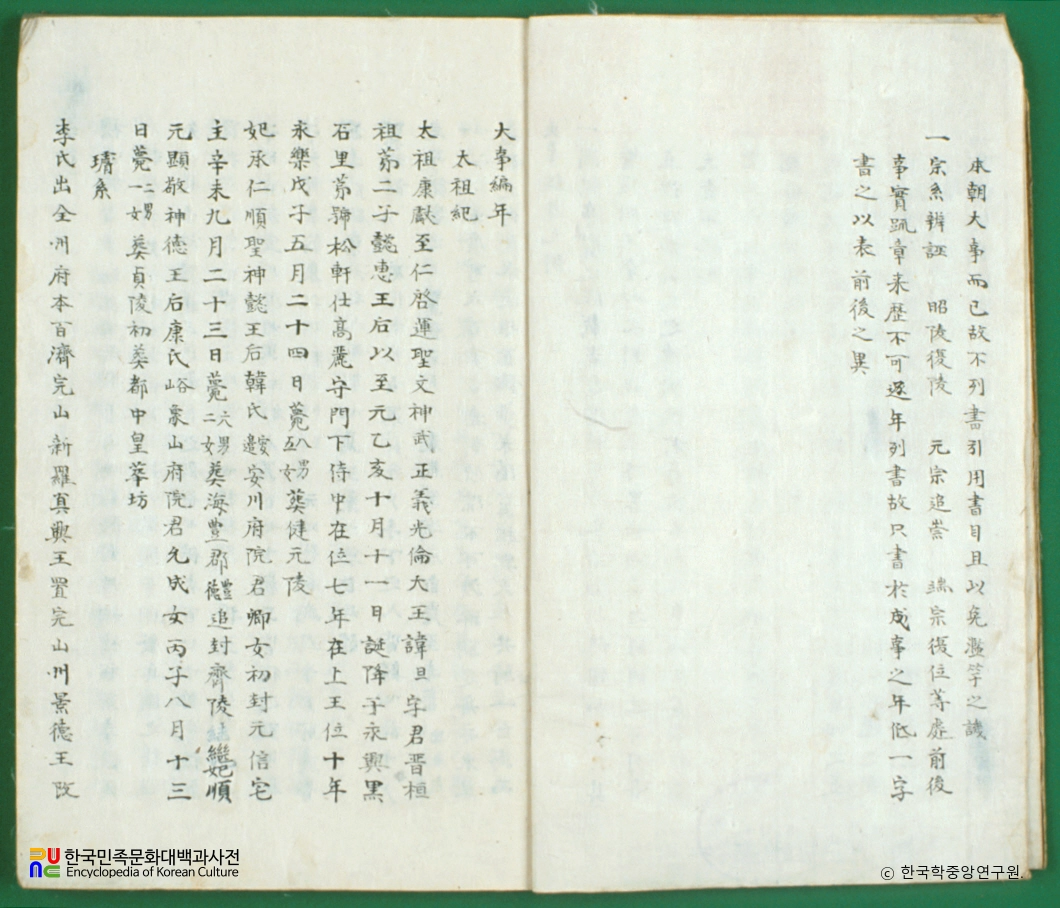 本朝大事而已故不列書引用書目且以免濫竽之譏
一 宗系辨誣 昭陵復陵 元宗追崇 端宗復位等處前後
事實疏章來歷不可逐年列書故只書於成事之年低一字
書之以表前後之異
大事編年
太祖紀
太祖康獻至仁啓運聖文神武正義光倫大王諱旦字君晋桓
祖第二子懿惠王后以至元乙亥十月十一日誕降于永興黑
石里第號松軒仕高麗守門下侍中在位七年在上王位十年
永樂戊子五月二十四日薨八男五女葬健元陵
妃承仁順聖神懿王后韓氏安邊安川府院君卿女初封元信宅
主辛未九月二十三日薨六男二女葬海豊郡追封齊陵繼妃順
元顯敬神德王后康氏峪象山府院君允成女丙子八月十三
日薨二男一女葬貞陵初葬都中皇華坊
璿系
李氏出全州府本百濟完山新羅真興王置完山州景德王改
한국민족문화대백과사전
Encyclopedia of Korean Culture
© 한국학중앙연구원.